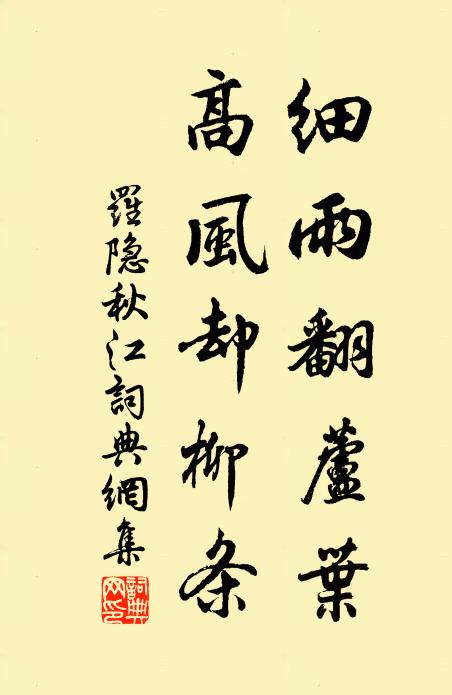 細雨翻蘆葉
高風却柳条
羅隐秋江詞典網集
詞典網印